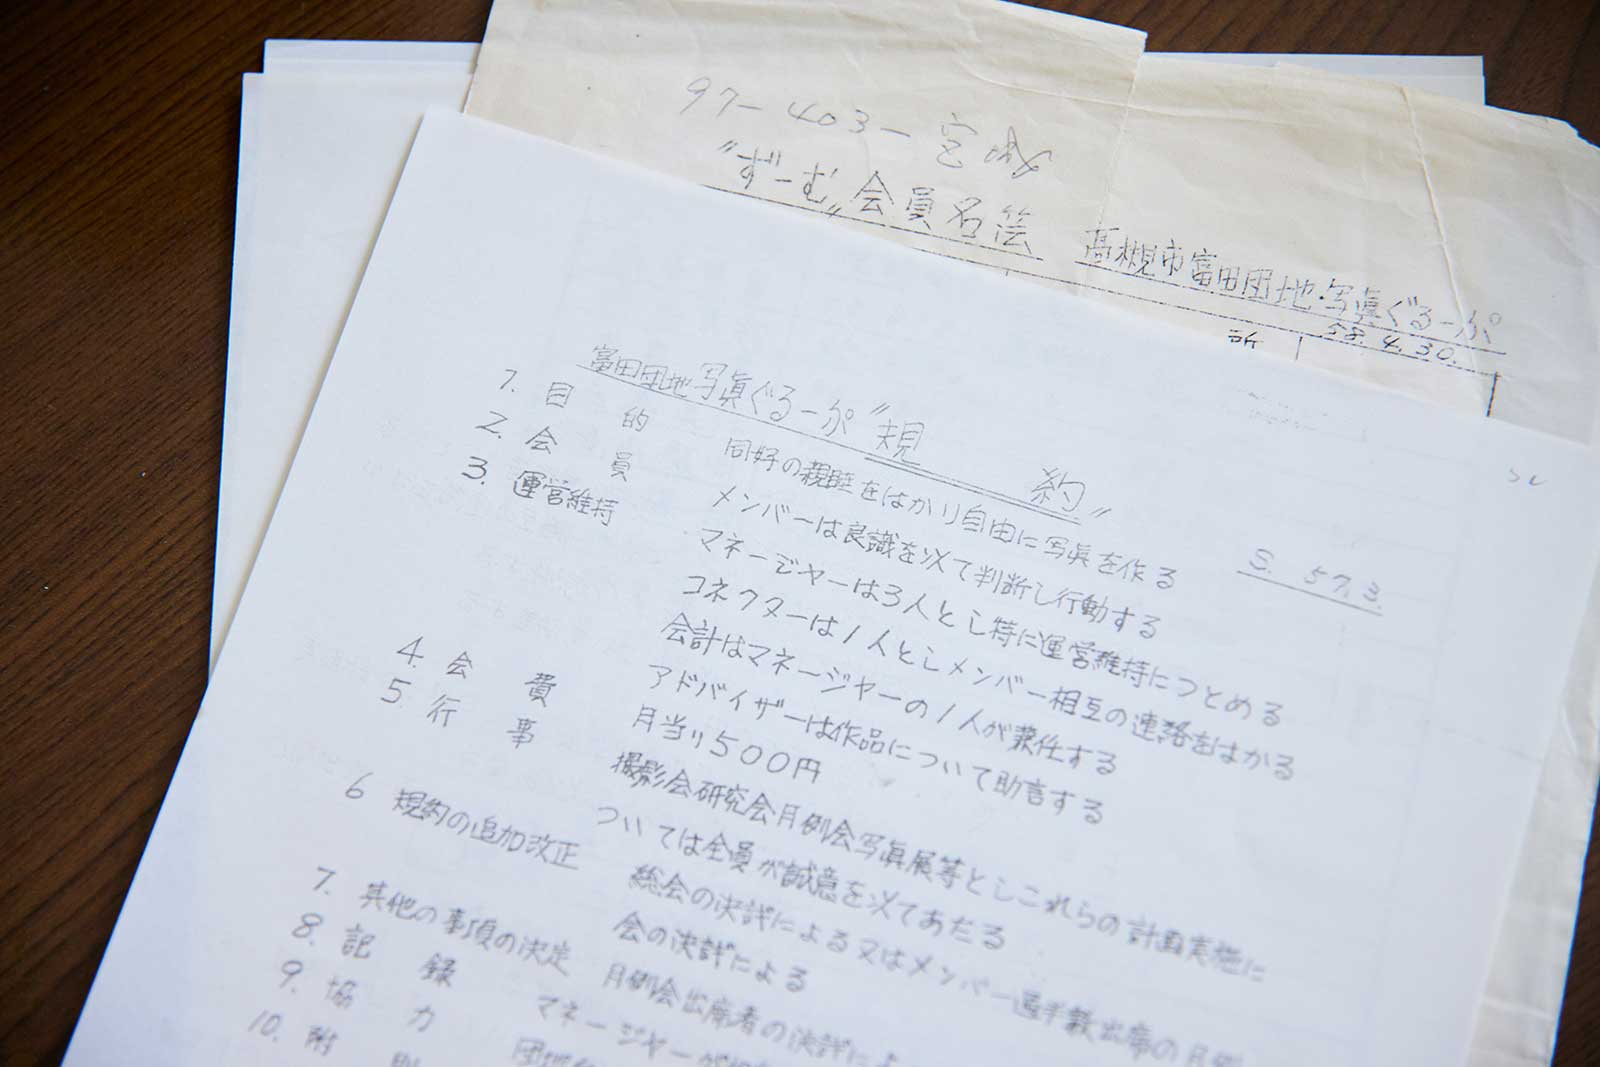 97-403-宮城
"ずーむ"会員名簿 高槻市富田団地・写眞ぐるーぷ
58.4.30.
所
富田団地写眞ぐるーぷ"規 約"
S. 57.3.
1. 目 的 同好の親睦をはかり自由に写眞を作る
2. 会 員 メンバーは良識を以て判断し行動する
3. 運営維持 マネージャーは3人とし特に運営維持につとめる
コネクターは1人としメンバー相互の連絡をはかる
会計はマネージャーの1人が兼任する
アドバイザーは作品について助言する
4. 会 費 月当り500円
5. 行 事 撮影会研究会月例会写眞展等としこれらの計画実施に
ついては全員が誠意を以てあたる
6 規約の追加改正 総会の決議による又はメンバー過半数出席の月例
会の決議による
7. 其他の事項の決定 月例会出席者の決議によ
8. 記 録 マネージャーが
9. 協 力 団地
10. 附 則